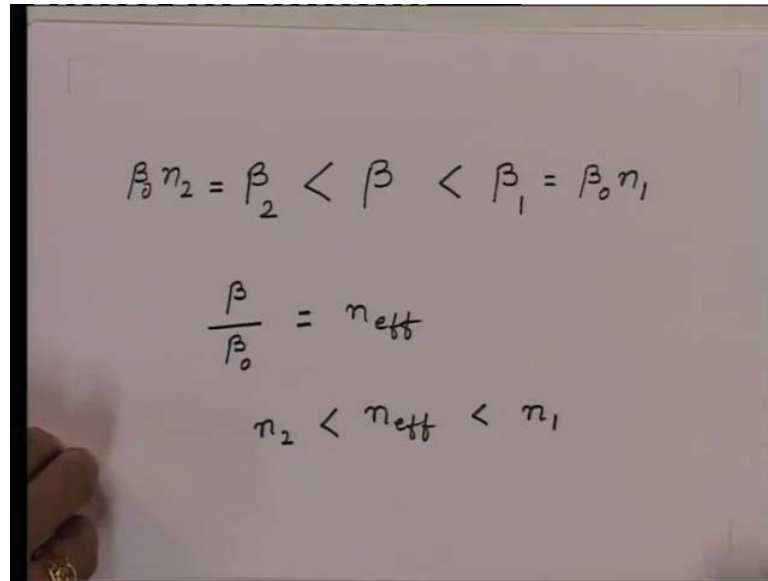 β₀n₂ = β₂ < β < β₁ = β₀n₁
β/β₀ = n_eff
n₂ < n_eff < n₁